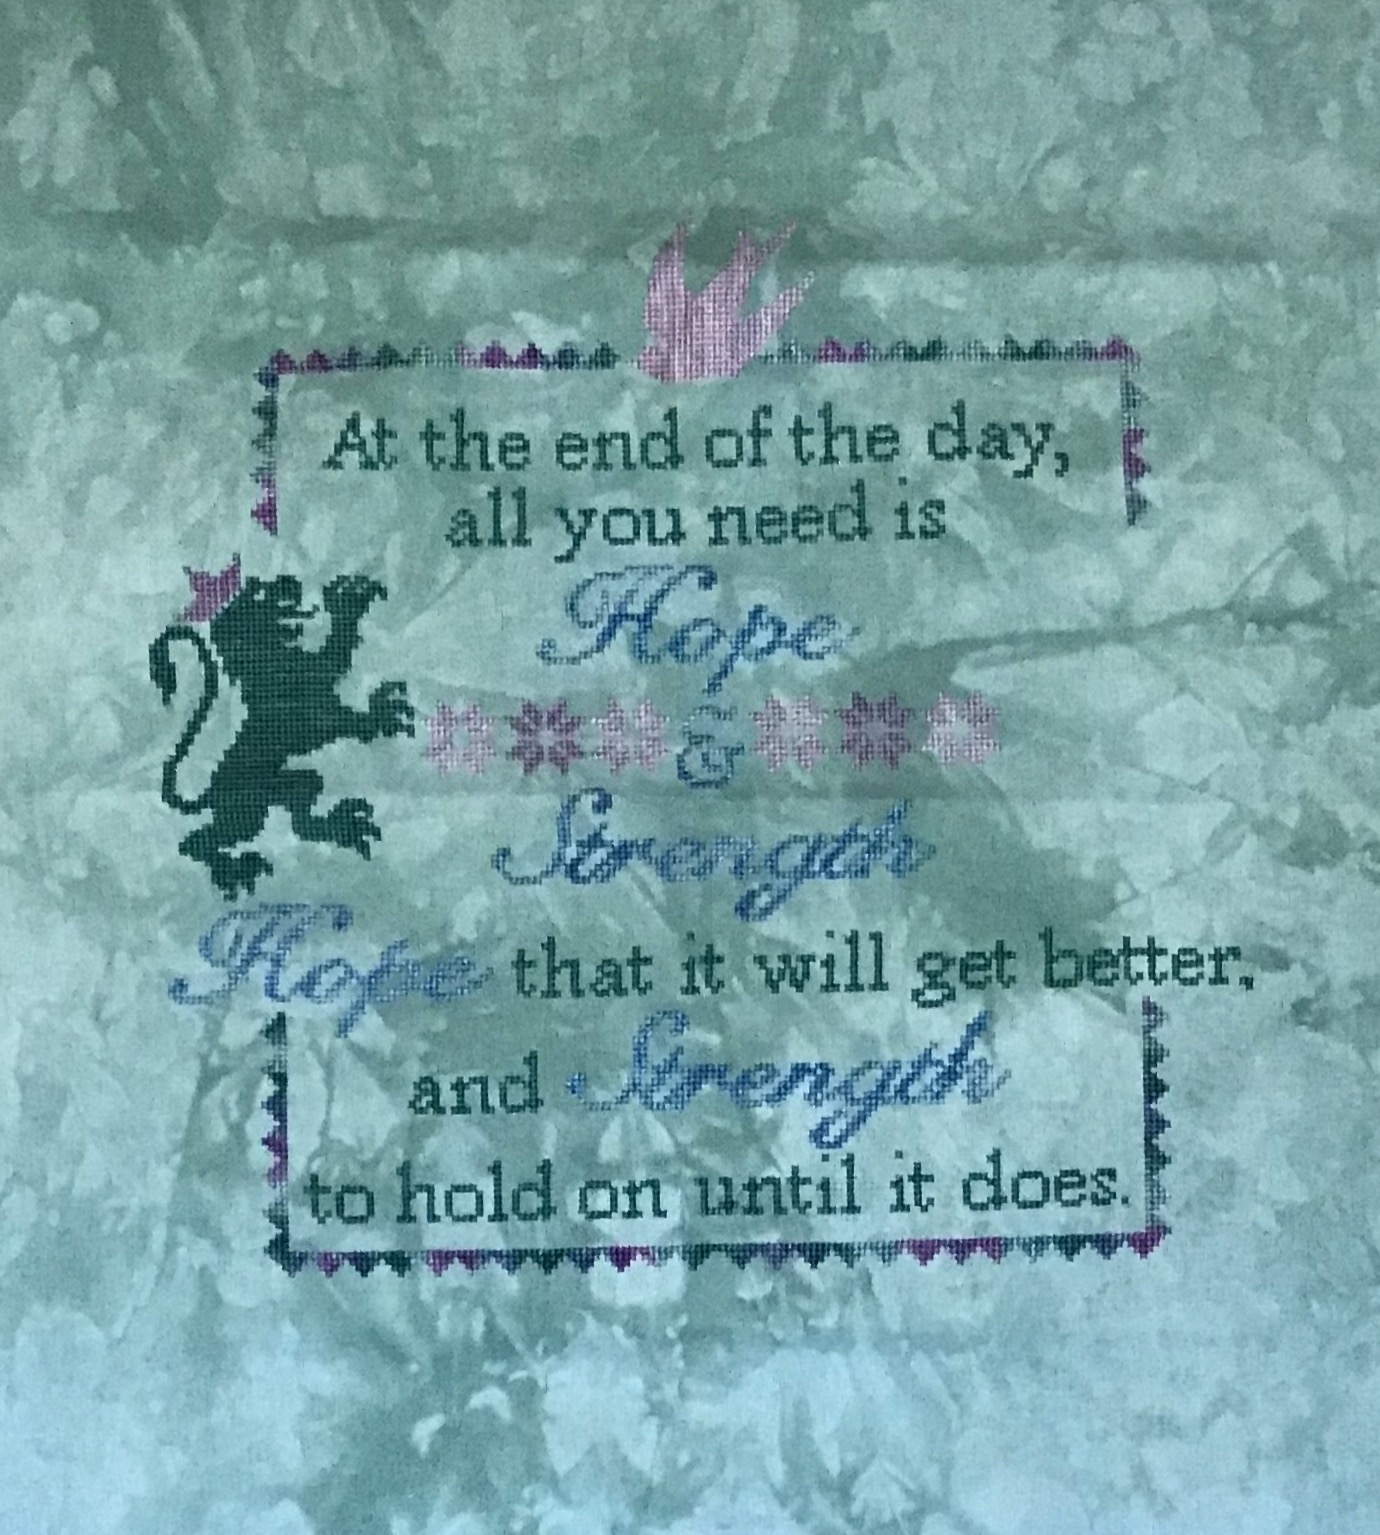 At the end of the day,
all you need is
Hope
&
Strength
Hope that it will get better,
and Strength
to hold on until it does.